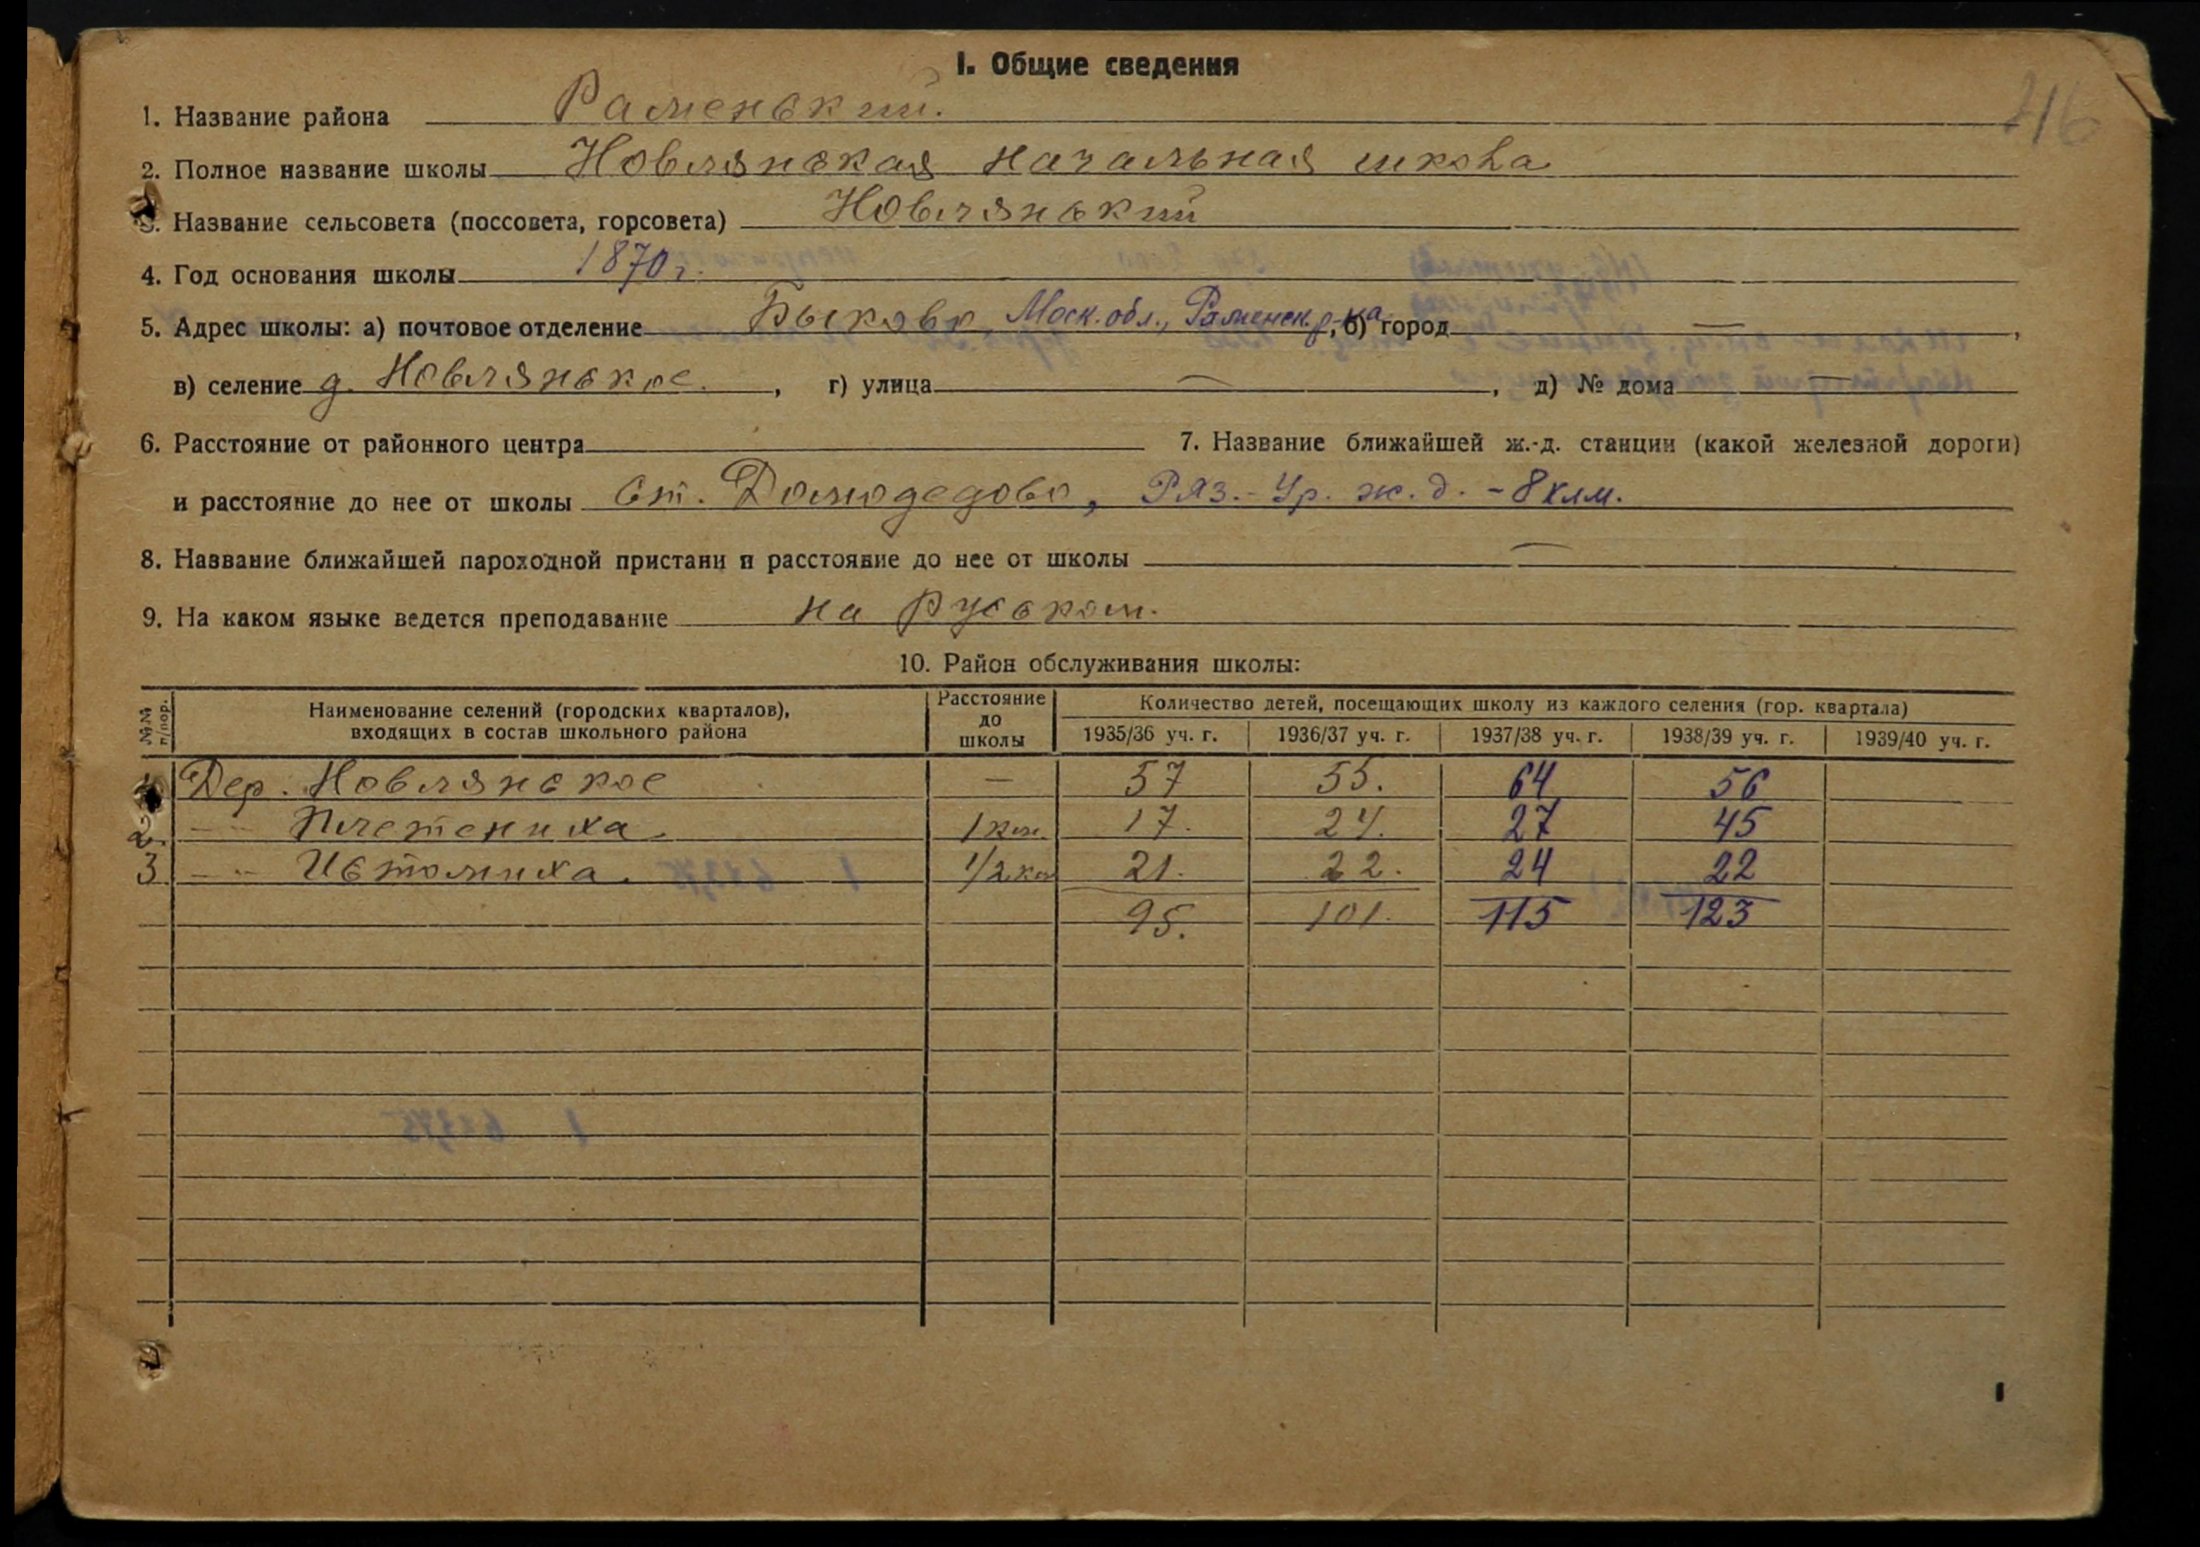 I. Общие сведения
716
1. Название района Раменский.
2. Полное название школы Новлянская начальная школа
3. Название сельсовета (поссовета, горсовета) Новлянский
4. Год основания школы 1870 г.
5. Адрес школы: а) почтовое отделение Быково, Моск. обл., Раменск. р-на, б) город —,
в) селение д. Новлянское., г) улица —, д) № дома —
6. Расстояние от районного центра 7. Название ближайшей ж.-д. станции (какой железной дороги)
и расстояние до нее от школы ст. Домодедово, Ряз.-Ур. ж.д. - 8 клм.
8. Название ближайшей пароходной пристани и расстояние до нее от школы —
9. На каком языке ведется преподавание на русском.
10. Район обслуживания школы:
№№ п/пор. Наименование селений (городских кварталов), входящих в состав школьного района Расстояние до школы Количество детей, посещающих школу из каждого селения (гор. квартала)
1935/36 уч. г. 1936/37 уч. г. 1937/38 уч. г. 1938/39 уч. г. 1939/40 уч. г.
Дер. Новлянское — 57 55. 64 56
2. — " — Плетениха. 1 км. 17. 24. 27 45
3. — " — Истомиха. 1/2 км 21. 22. 24 22
95. 101. 115 123
1